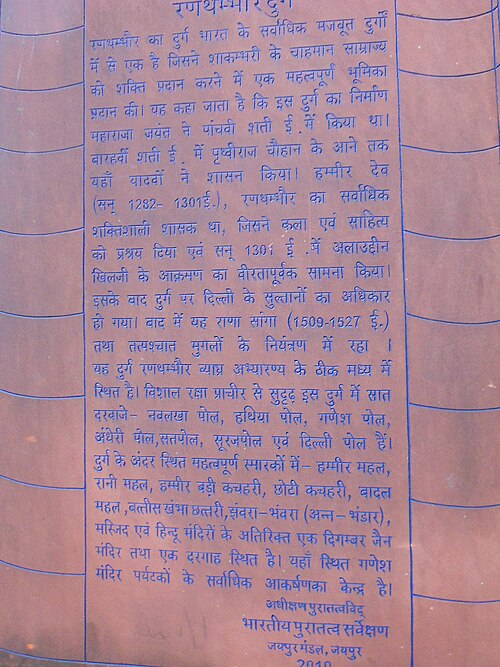 रणथम्भौर दुर्ग
रणथम्भौर का दुर्ग भारत के सर्वाधिक मजबूत दुर्गों
में से एक है जिसने शाकम्भरी के चाहमान साम्राज्य
को शक्ति प्रदान करने में एक महत्वपूर्ण भूमिका
प्रदान की। यह कहा जाता है कि इस दुर्ग का निर्माण
महाराजा जयंत ने पांचवी शती ई. में किया था।
बारहवीं शती ई. में पृथ्वीराज चौहान के आने तक
यहाँ यादवों ने शासन किया। हम्मीर देव
(सन् 1282- 1301ई.), रणथम्भौर का सर्वाधिक
शक्तिशाली शासक था, जिसने कला एवं साहित्य
को प्रश्रय दिया एवं सन् 1301 ई .में अलाउद्दीन
खिलजी के आक्रमण का वीरतापूर्वक सामना किया।
इसके बाद दुर्ग पर दिल्ली के सुल्तानों का अधिकार
हो गया। बाद में यह राणा सांगा (1509-1527 ई.)
तथा तत्पश्चात मुगलों के नियंत्रण में रहा ।
यह दुर्ग रणथम्भौर व्याघ्र अभ्यारण्य के ठीक मध्य में
स्थित है। विशाल रक्षा प्राचीर से सुदृढ़ इस दुर्ग में सात
दरवाजे- नवलखा पोल, हथिया पोल, गणेश पोल,
अंधेरी पोल,सतपोल, सूरजपोल एवं दिल्ली पोल हैं।
दुर्ग के अंदर स्थित महत्वपूर्ण स्मारकों में- हम्मीर महल,
रानी महल, हम्मीर बड़ी कचहरी, छोटी कचहरी, बादल
महल,बत्तीस खंभा छत्तरी,झंवरा-भंवरा (अन्न-भंडार),
मस्जिद एवं हिन्दू मंदिरों के अतिरिक्त एक दिगम्बर जैन
मंदिर तथा एक दरगाह स्थित है। यहाँ स्थित गणेश
मंदिर पर्यटकों के सर्वाधिक आकर्षणका केन्द्र है।
अधीक्षण पुरातत्वविद्
भारतीय पुरातत्व सर्वेक्षण
जयपुर मंडल, जयपुर
2010